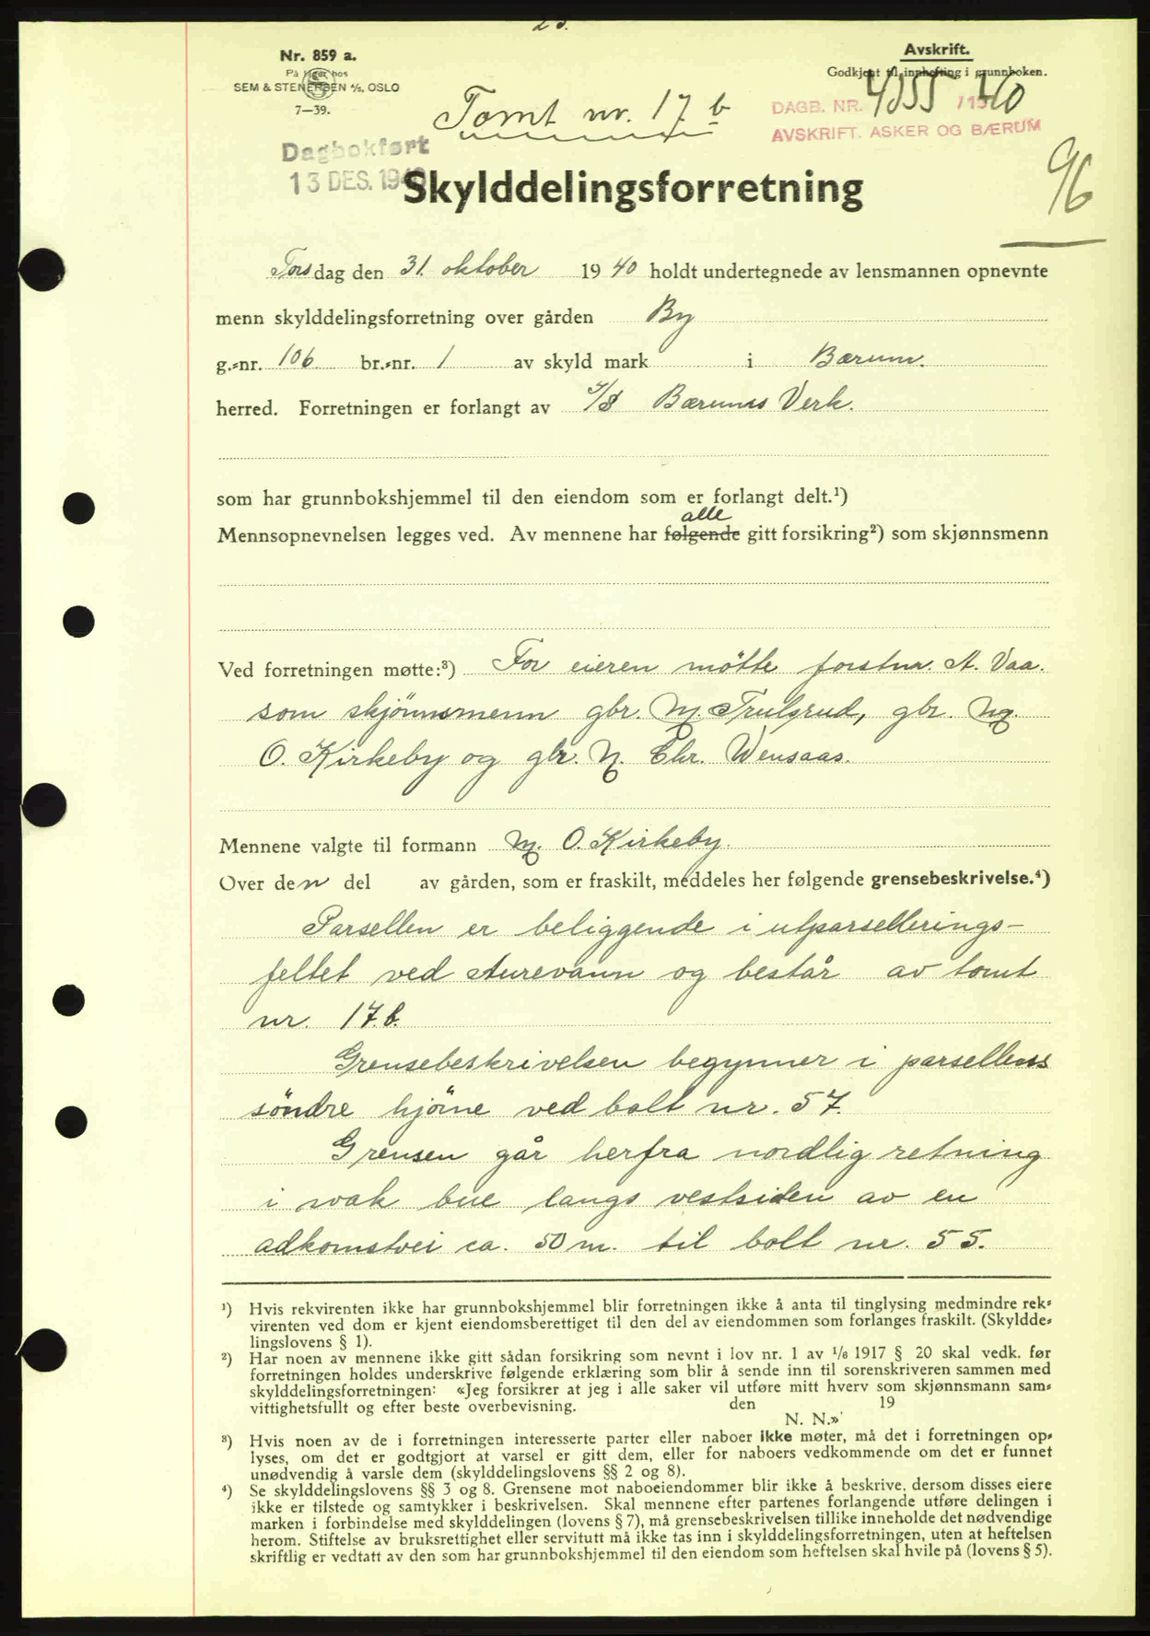 Nr. 859 a.
På lager hos
SEM & STENERSEN A/S, OSLO
7—39.
Avskrift.
Godkjent til innhefting i grunnboken.
Tomt nr. 17 b
DAGB. NR. 4055 /1940
AVSKRIFT. ASKER OG BÆRUM
Dagbokført
13 DES. 1940
96
Skylddelingsforretning
Torsdag den 31. oktober 1940 holdt undertegnede av lensmannen opnevnte
menn skylddelingsforretning over gården By
g.-nr. 106 br.-nr. 1 av skyld mark i Bærum.
herred. Forretningen er forlangt av I/S Bærums Verk.
som har grunnbokshjemmel til den eiendom som er forlangt delt.¹)
alle
Mennsopnevnelsen legges ved. Av mennene har følgende gitt forsikring²) som skjønnsmenn
Ved forretningen møtte:³) For eieren møtte forstm. A. Vaa.
som skjønnsmenn gbr. M. Trulsrud, gbr. M.
O. Kirkeby og gbr. N. Chr. Wensaas.
Mennene valgte til formann M. O. Kirkeby.
Over den del av gården, som er fraskilt, meddeles her følgende grensebeskrivelse.⁴)
Parsellen er beliggende i utparsellerings-
feltet ved Aurevann og består av tomt
nr. 17 b.
Grensebeskrivelsen begynner i parsellens
søndre hjørne ved bolt nr. 57.
Grensen går herfra nordlig retning
i svak bue langs vestsiden av en
adkomstvei ca. 50 m. til bolt nr. 55.
¹) Hvis rekvirenten ikke har grunnbokshjemmel blir forretningen ikke å anta til tinglysing medmindre rek-
virenten ved dom er kjent eiendomsberettiget til den del av eiendommen som forlanges fraskilt. (Skyldde-
lingslovens § 1).
²) Har noen av mennene ikke gitt sådan forsikring som nevnt i lov nr. 1 av 1/6 1917 § 20 skal vedk. før
forretningen holdes underskrive følgende erklæring som blir å sende inn til sorenskriveren sammen med
skylddelingsforretningen: «Jeg forsikrer at jeg i alle saker vil utføre mitt hverv som skjønnsmann sam-
vittighetsfullt og efter beste overbevisning. den 19
N. N.»
³) Hvis noen av de i forretningen interesserte parter eller naboer ikke møter, må det i forretningen op-
lyses, om det er godtgjort at varsel er gitt dem, eller for naboers vedkommende om det er funnet
unødvendig å varsle dem (skylddelingslovens §§ 2 og 8).
⁴) Se skylddelingslovens §§ 3 og 8. Grensene mot naboeiendommer blir ikke å beskrive, dersom disses eiere
ikke er tilstede og samtykker i beskrivelsen. Skal mennene efter partenes forlangende utføre delingen i
marken i forbindelse med skylddelingen (lovens § 7), må grensebeskrivelsen tillike inneholde det nødvendige
herom. Stiftelse av bruksrettighet eller servitutt må ikke tas inn i skylddelingsforretningen, uten at heftelsen
skriftlig er vedtatt av den som har grunnbokshjemmel til den eiendom som heftelsen skal hvile på (lovens § 5).